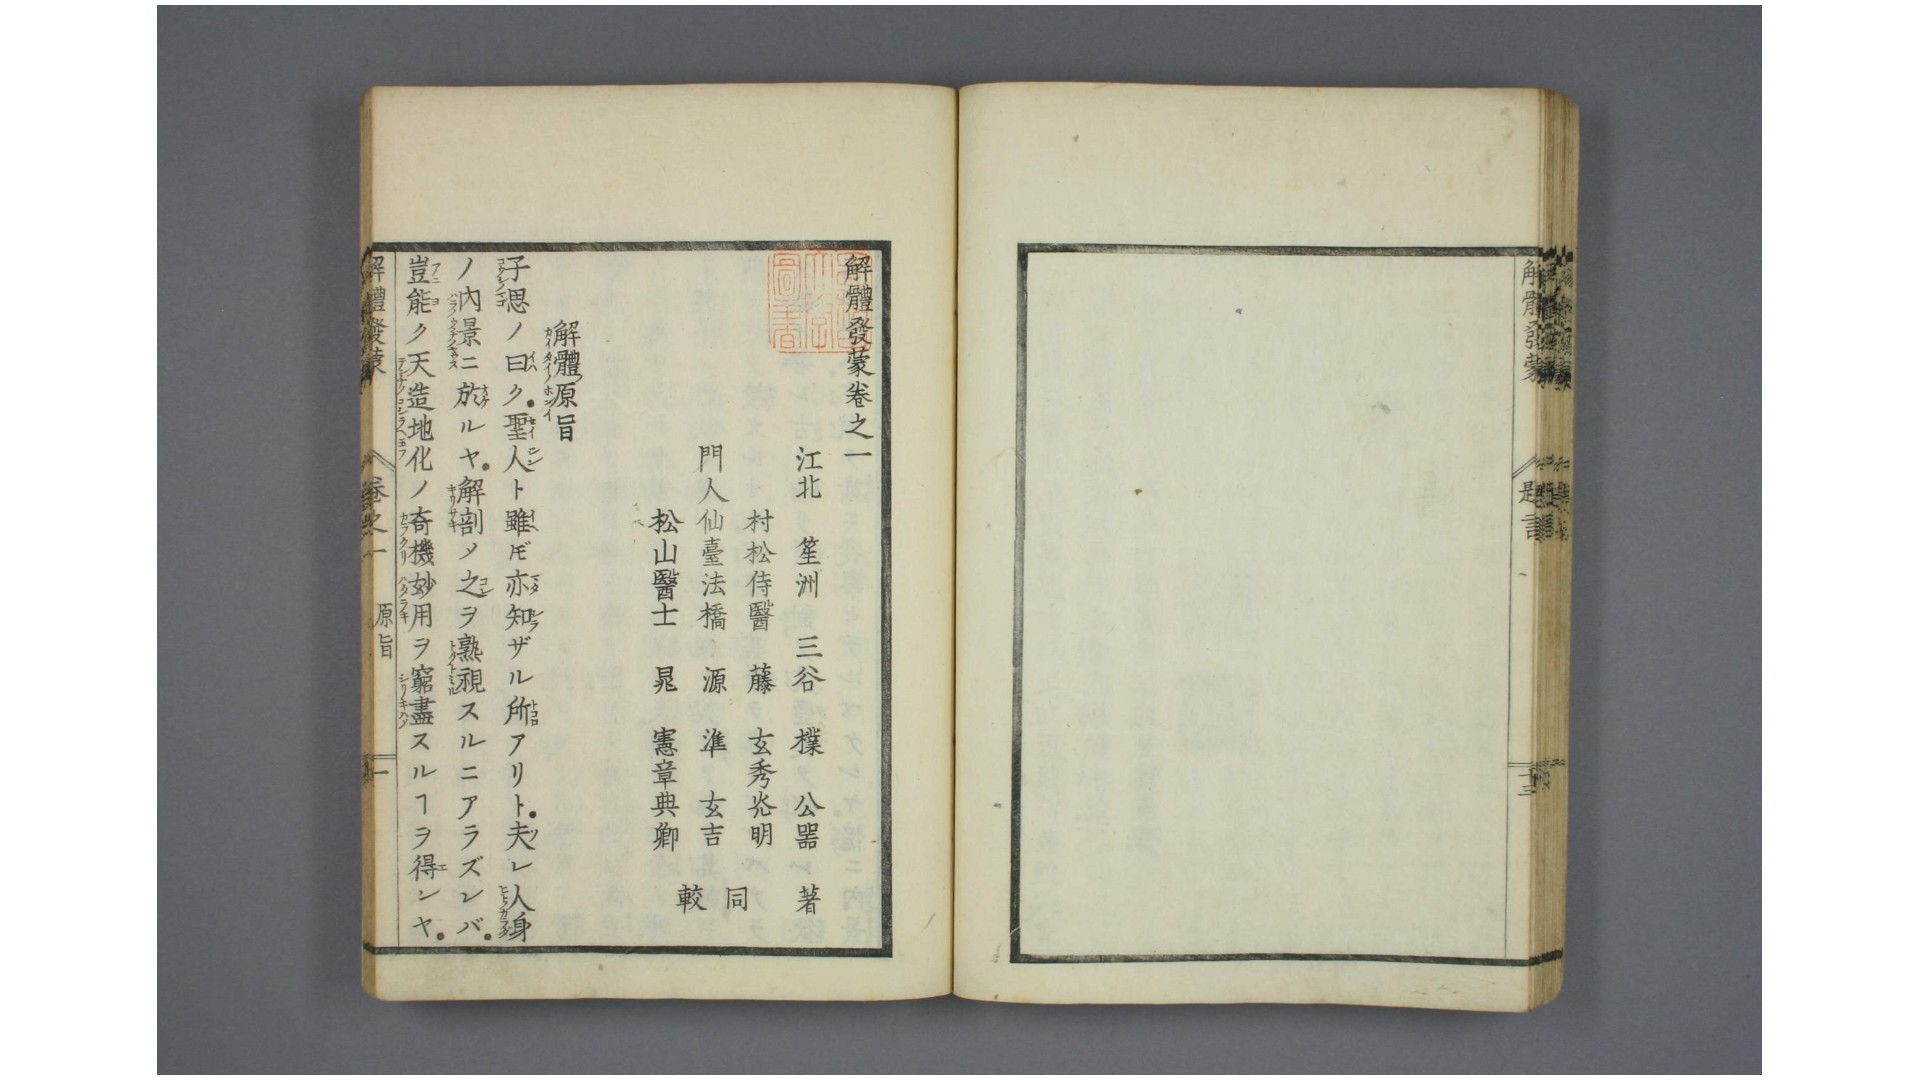 解體發蒙
題言
十三
解體發蒙卷之一
江北 笙洲 三谷 樸 公器 著
村松侍醫 藤 玄秀㷔明
門人仙臺法橋 源 準 玄吉
松山醫士 晁 憲章典卿
同較
解體原旨
カイタイノホンイ
子思ノ曰ク聖人ト雖モ亦知ザル所アリト夫レ人身
ノ內景ニ於ルヤ解剖メ之ヲ熟視スルニアラズンバ
豈能ク天造地化ノ奇機妙用ヲ窮盡スルヿヲ得ンヤ
解體發蒙
卷之一
原旨
一